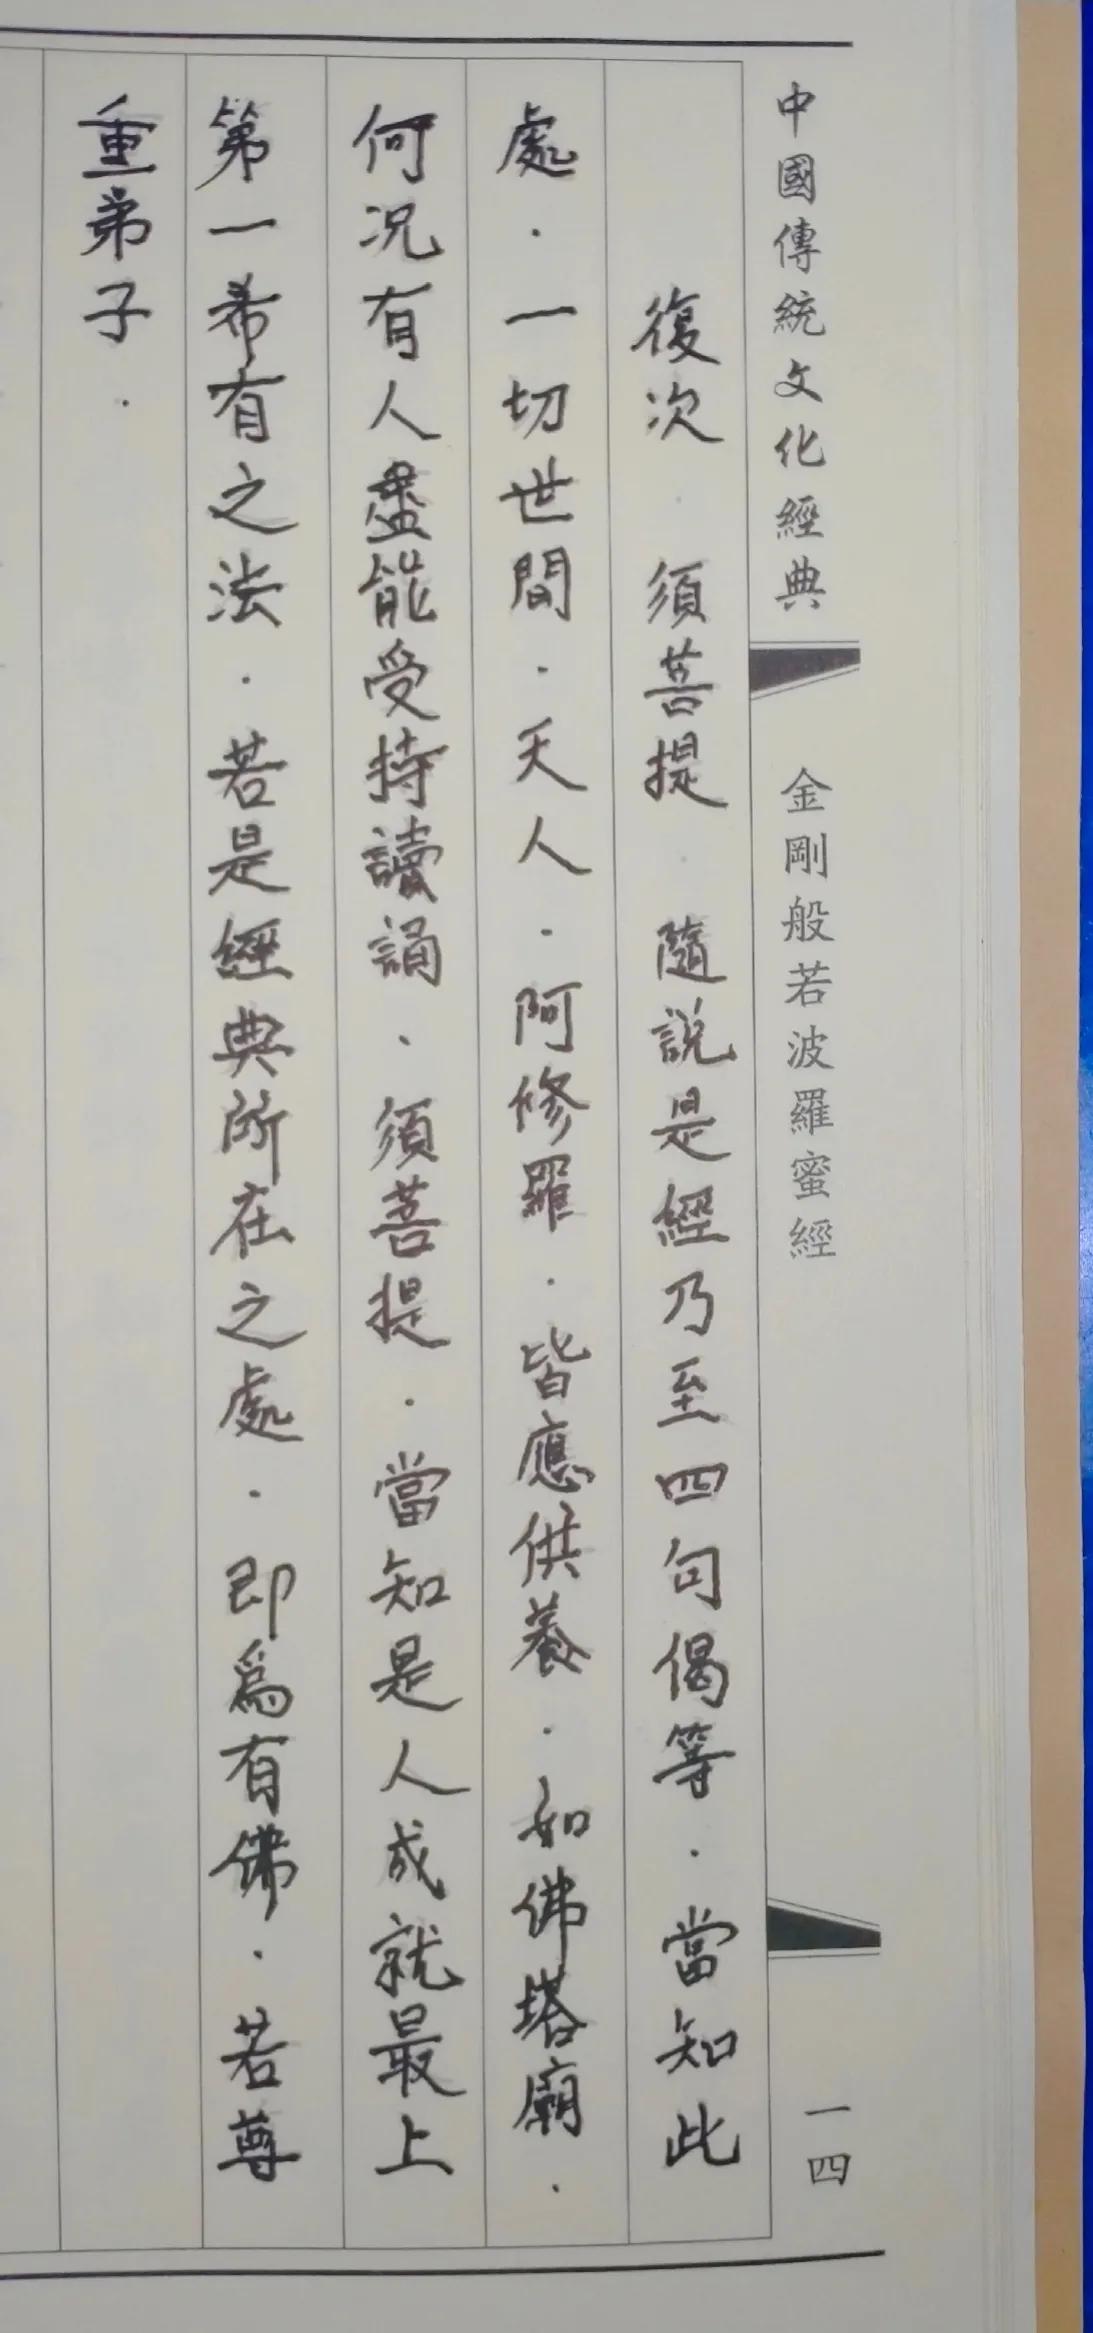 中國傳統文化經典
金剛般若波羅蜜經
一四
復次．須菩提．隨說是經乃至四句偈等．當知此
處．一切世間．天人．阿修羅．皆應供養．如佛塔廟．
何況有人盡能受持讀誦．須菩提．當知是人成就最上
第一希有之法．若是經典所在之處．即爲有佛．若尊
重弟子．